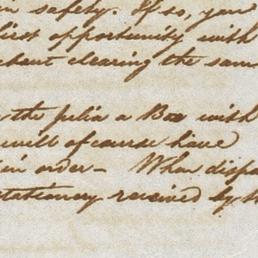 in safety. If so, your
liest opportunity with
thout clearing the same
the Julia a Box with
will of course have
in order - When dispa
stationery received by